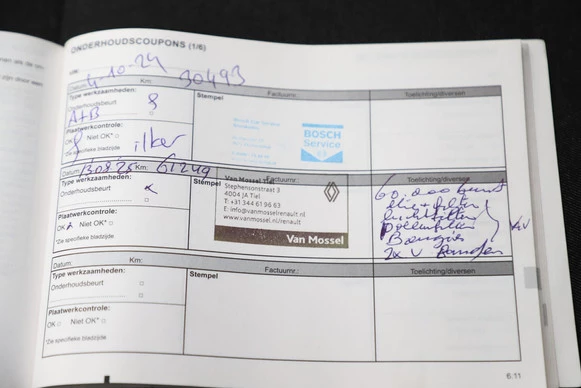 ONDERHOUDSCOUPONS (1/6)
Datum: 4-10-24 Km: 30493
Type werkzaamheden:
Onderhoudsbeurt
A+B
Plaatwerkcontrole:
OK Niet OK*
*Zie specifieke bladzijde
ilker
Stempel
Factuurnr.:
BOSCH
Service
Toelichting/diversen
Datum: 130825 Km: 61249
Type werkzaamheden:
Onderhoudsbeurt
Plaatwerkcontrole:
OK Niet OK*
*Zie specifieke bladzijde
Stempel
Factuurnr.:
Van Mossel Tiel
Stephensonstraat 3
4004 JA Tiel
T: +31 344 61 56 83
E: info@vanmosselrenault.nl
www.vanmossel.nl/renault
Van Mossel
Toelichting/diversen
60.000 beurt
olie + filter
luchtfilter
pollenfilter
Bougies
2x V Banden
Datum: Km:
Type werkzaamheden:
Onderhoudsbeurt
Plaatwerkcontrole:
OK Niet OK*
*Zie specifieke bladzijde
Stempel
Factuurnr.:
Toelichting/diversen
6.11